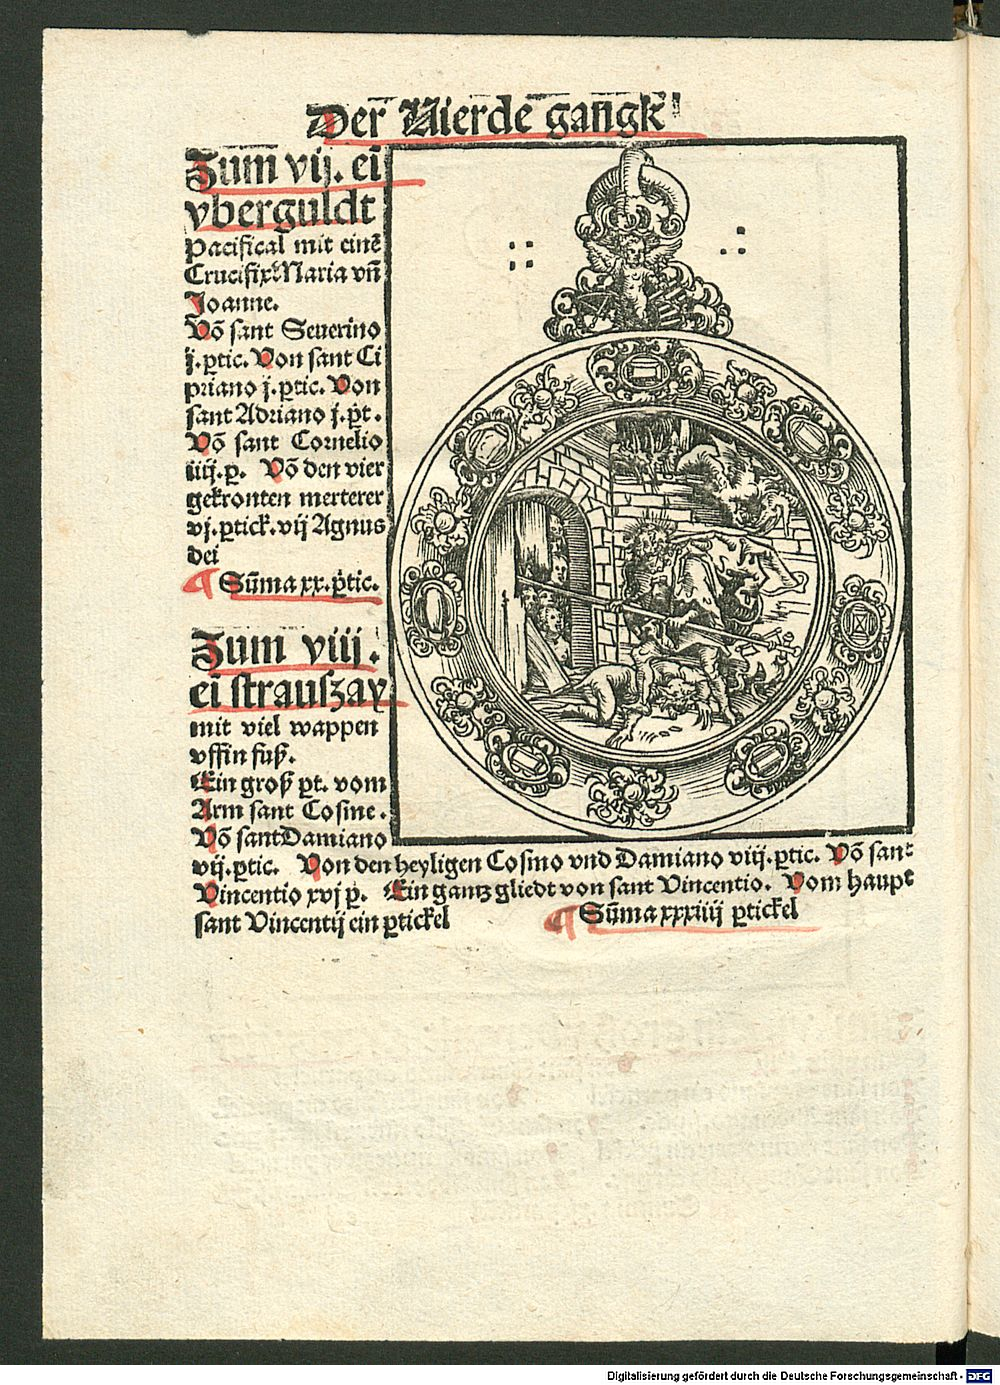 Der Vierde gangk
Zum vij. ei
vberguldt
Pacifical mit einē
Crucifix Maria vñ
Joanne.
Võ sant Seuerino
j. ꝑtic. Von sant Ci
priano j. ꝑtic. Von
sant Adriano j. ꝑt.
Võ sant Cornelio
iiij. ꝑ. Võ den vier
gekronten merterer
vj. ꝑtick. vij Agnus
dei
¶ Sūma xx. ꝑtic.
Zum viij.
ei strauszay
mit viel wappen
vffin fuß.
Ein groß ꝑt. vom
Arm sant Cosme.
Võ sant Damiano
vij. ꝑtic. Von den heyligen Cosmo vnd Damiano viij. ꝑtic. Võ san⸗
Vincentio xvj ꝑ. Ein gantz gliedt von sant Vincentio. Vom haupt
sant Vincentij ein ꝑtickel ¶ Sūma xxxiiij ꝑtickel
Digitalisierung gefördert durch die Deutsche Forschungsgemeinschaft - DFG